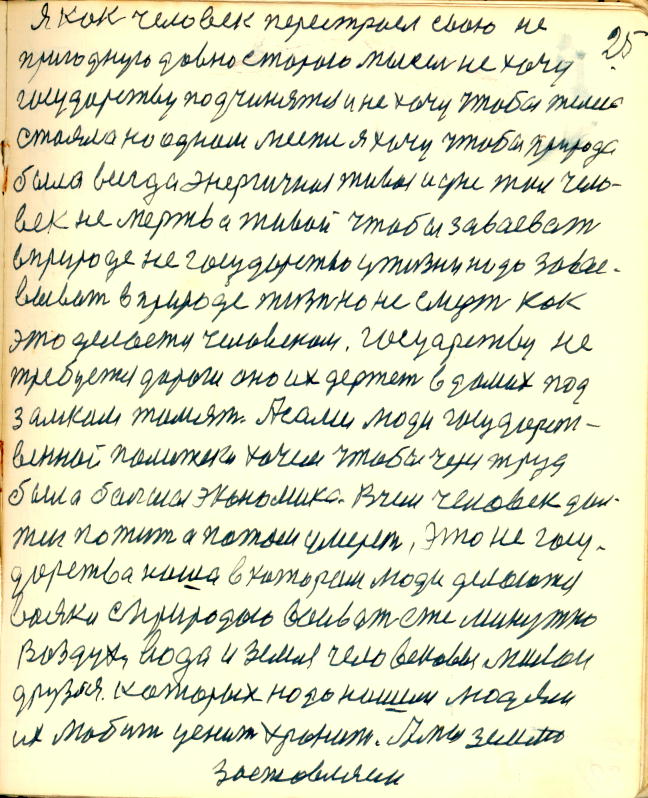 Я как человек перестроел свою не
25
пригодную давно старого мысел не хочу
государству подчинятся и не хочу чтобы телега
стояла на одном месте я хочу чтобы природа
была всегда энергичная живая и суне жил чело-
век не мертв а живой чтобы заваеват
в природе не государство у жизни надо завае-
вываат в природе жизн но не смерт как
это делается человеком. Государству не
требуется дороги оно их держет в домах под
замком томят. А сами люди государст-
венной политека хочем чтобы через труд
была балшая экономика. В чем человек дол-
жен пожит а потом умерет, это не госу-
дарства наша в котором люди делаются
вояки с природою воеват еже минутно
Воздух, вода и земля человековы милаи
друзья. которых надо нашим людям
их любит ценит хранит. А мы землю
заставляем